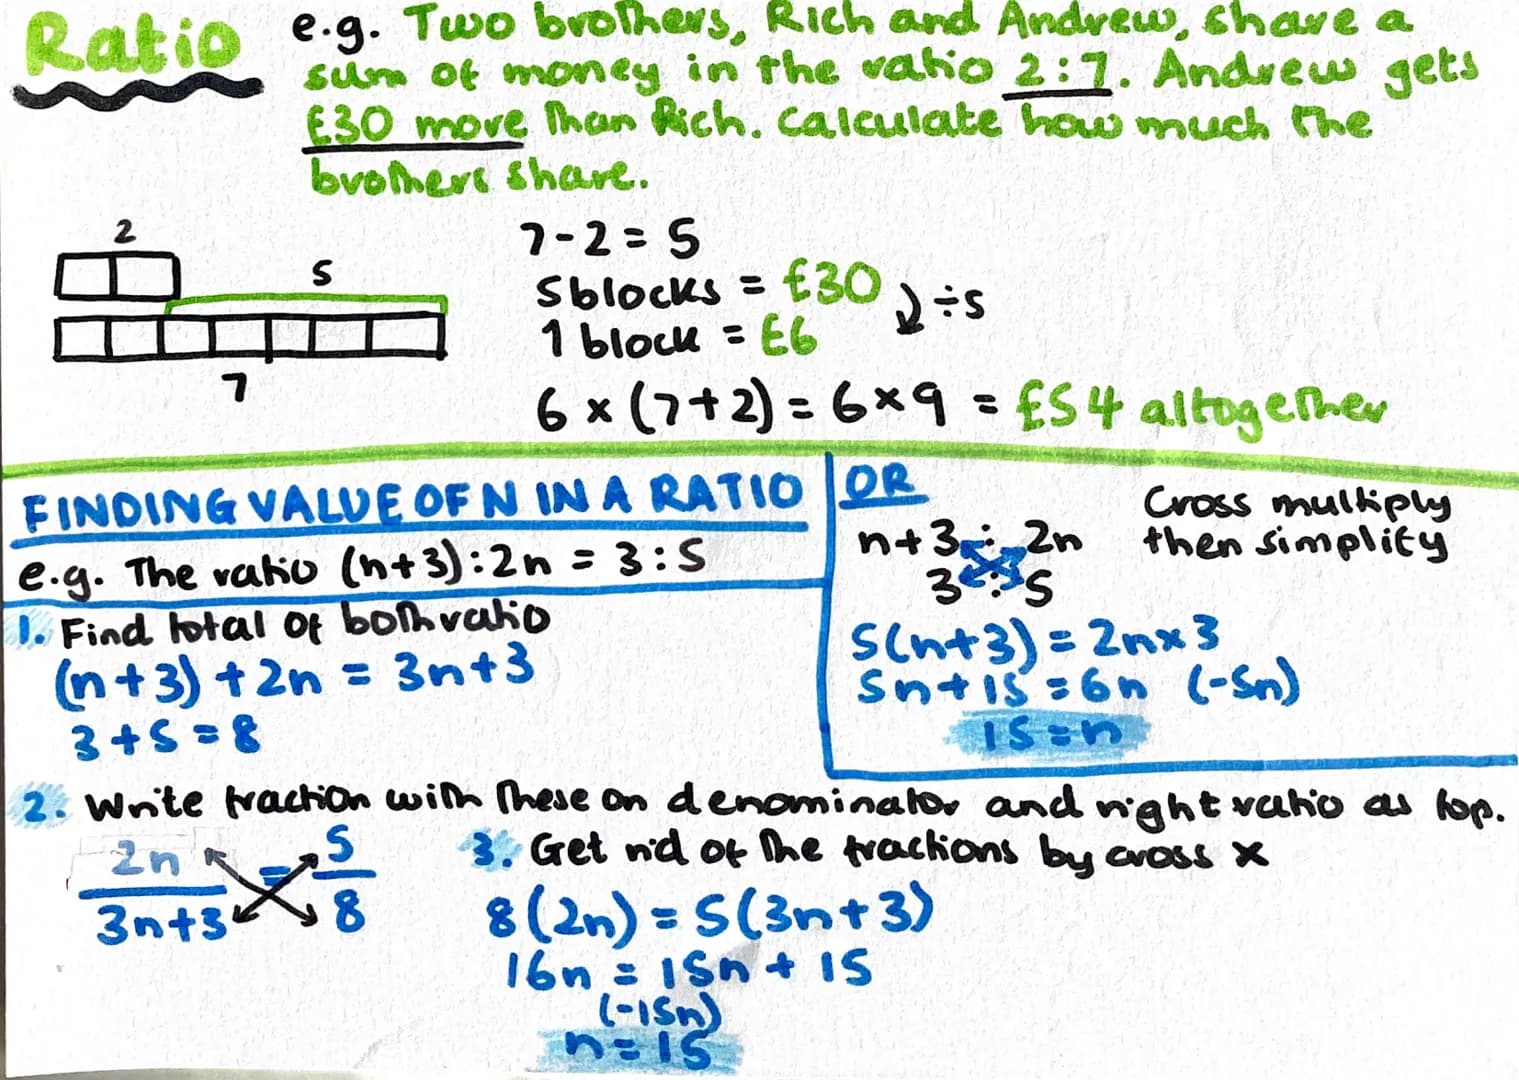 Ratio
e.g. Two brothers, Rich and Andrew, share a
sum of money in the ratio 2:7. Andrew gets
£30 more than Rich. Calculate how much the
brothers share.
2
5
7
7-2 = 5
5 blocks = £30
÷5
1 block = £6
6 x (7+2) = 6x9 = £54 altogether
FINDING VALUE OF N IN A RATIO
e.g. The ratio (n+3):2n = 3:5
1. Find total of both ratio
(n+3) + 2n = 3n+3
3+5 = 8
OR
n+3 : 2n
3 : 5
Cross multiply
then simplify
5(n+3) = 2n x 3
5n+15 = 6n (-5n)
15 = n
2. Write fraction with these on denominator and right ratio as top.
2n = 5
3n+3 8
3. Get rid of the fractions by cross x
8(2n) = 5(3n+3)
16n = 15n + 15
(-15n)
n = 15